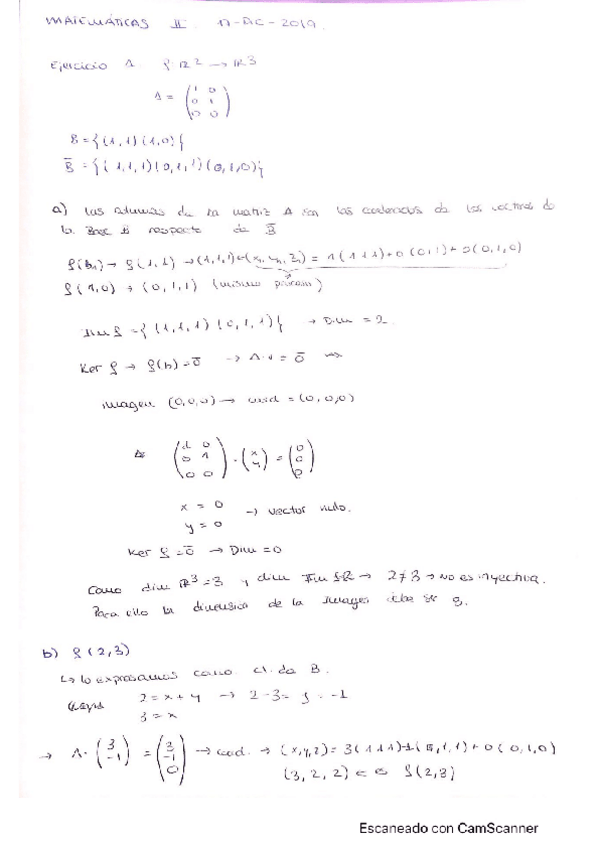 MATEMÁTICAS II 17-DIC-2019
Ejercicio 1. f: ℝ² → ℝ³
A = (1 0
0 1
0 0)
B = {(1,1)(1,0)}
B̄ = {(1,1,1)(0,1,1)(0,1,0)}
a) Las columnas de la matriz A son las coordenadas de los vectores de
la Base B respecto de B̄
f(b₁) → f(1,1) → (1,1,1) = 1(1 1 1) + 0 (0,1,1) + 0(0,1,0)
f(1,0) → (0,1,1) (mismo proceso)
Im f = {(1,1,1)(0,1,1)} → Dim = 2.
Ker f → f(b) = 0̄ → A·v = 0̄
imagen (0,0,0) → coord = (0,0,0)
(1 0
0 1
0 0) · (x
y) = (0
0
0)
x = 0
y = 0 → vector nulo.
Ker f = 0̄ → Dim = 0
Como dim ℝ³ = 3 y dim Im f = 2 → 2 ≠ 3 → no es inyectiva.
Para ello la dimension de la imagen debe ser 3.
b) f(2,3)
↳ lo expresamos como cl. de B.
2 = x + y → 2 - 3 = y = -1
3 = x
→ A · (3
-1) = (3
-1
0) → cood. → (x,y,z) = 3(1 1 1) -1(0,1,1) + 0(0,1,0)
(3,2,2) f(2,3)
Escaneado con CamScanner